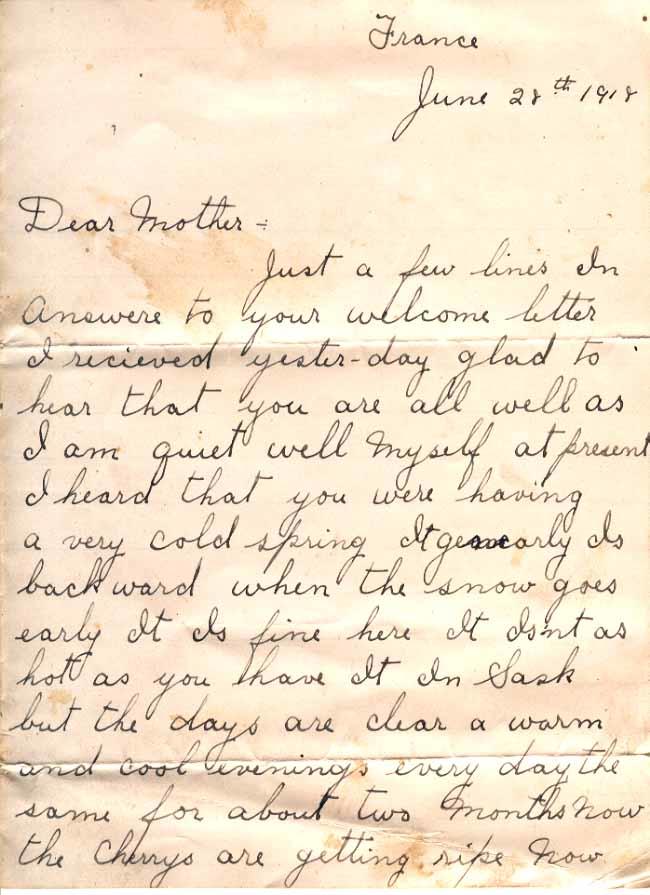 France
June 28th 1918
Dear Mother -
Just a few lines In
Answere to your welcome letter
I recieved yester-day glad to
hear that you are all well as
I am quiet well Myself at present
I heard that you were having
a very cold spring It is
backward when the snow goes
early It Is fine here It Isnt as
hot as you have It In Sask
but the days are clear a warm
and cool evenings every day the
same for about two Months Now
the Cherrys are getting ripe Now